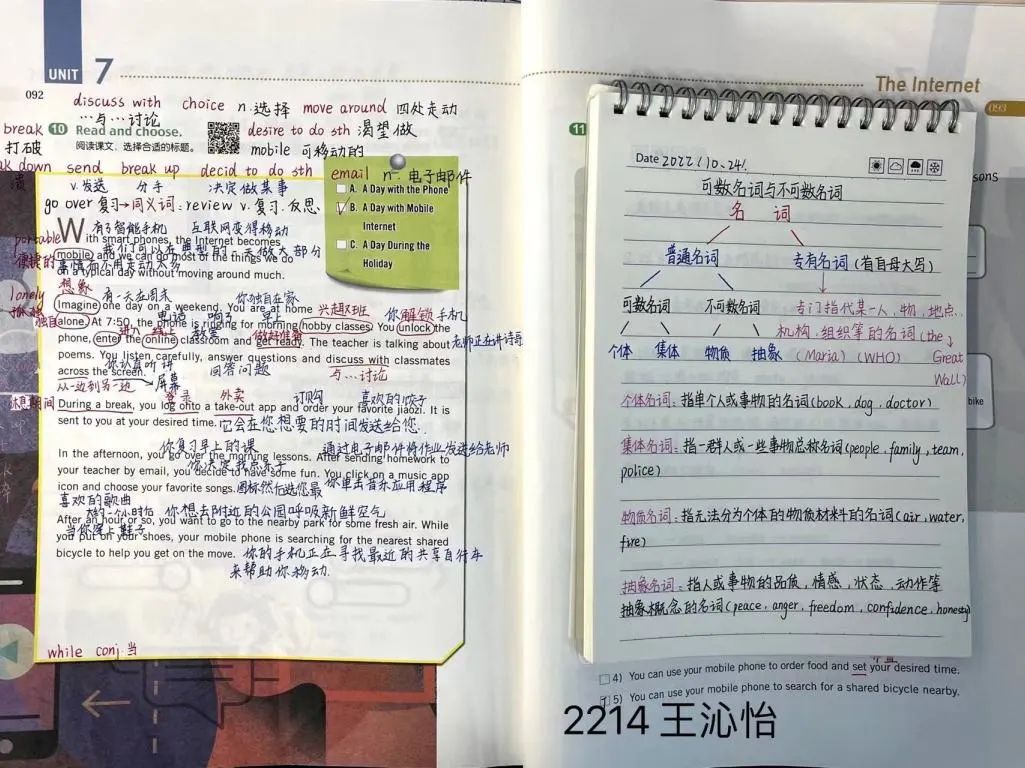 UNIT 7
092
discuss with choice n.选择 move around 四处走动
…与…讨论
break
打破
10 Read and choose.
阅读课文，选择合适的标题。
desire to do sth 渴望做
mobile 可移动的
ak down send break up decid to do sth email n. 电子邮件
v.发送 分手 决定做某事
go over 复习→同义词：review v.复习.反思
A. A Day with the Phone
B. A Day with Mobile
Internet
C. A Day During the
Holiday
有了智能手机 互联网变得移动
With smart phones, the Internet becomes
portable
便捷的
我们可以在典型的一天做大部分
mobile and we can do most of the things we do
事情而不用走动太多
on a typical day without moving around much.
想象 有一天在周末 你独自在家 兴趣班 你解锁手机
lonely
Imagine one day on a weekend. You are at home
独自
alone. At 7:50, the phone is ringing for morning hobby classes. You unlock the
进入 线上 教室 做好准备
phone, enter the online classroom and get ready. The teacher is talking about 老师正在讲诗哥
poems. You listen carefully, answer questions and discuss with classmates
你认真听讲 回答问题 与…讨论
across the screen.
从一边到另一边 屏幕
登录 外卖 订购 喜欢的饺子
休息期间 During a break, you log onto a take-out app and order your favorite jiaozi. It is
sent to you at your desired time. 它会在您想要的时间发送给您.
你复习早上的课 通过电子邮件将作业发送给老师
In the afternoon, you go over the morning lessons. After sending homework to
your teacher by email, you decide to have some fun. You click on a music app
icon and choose your favorite songs. 图标然后选您最 你单击音乐应用程序
喜欢的歌曲
大约一个小时后 你想去附近的公园呼吸新鲜空气
After an hour or so, you want to go to the nearby park for some fresh air. While
当你穿上鞋子
you put on your shoes, your mobile phone is searching for the nearest shared
bicycle to help you get on the move. 你的手机正在寻找最近的共享自行车
来帮助你移动.
while conj.当
The Internet
093
11
sons
bike
Date 2022.10.24.
可数名词与不可数名词
名 词
普通名词 专有名词（有首字母大写）
可数名词 不可数名词 专门指代某一人，物，地点
机构．组织等的名词（the
个体 集体 物质 抽象 （Maria）（WHO） Great
Wall）
个体名词：指单个人或事物的名词（book．dog．doctor）
集体名词：指一群人或一些事物总称名词（people，family，team，
police）
物质名词：指无法分为个体的物质材料的名词（air，water，
fire）
抽象名词：指人或事物的品质，情感，状态，动作等
抽象概念的名词（peace，anger，freedom，confidence，honesty）
4) You can use your mobile phone to order food and set your desired time.
5) You can use your mobile phone to search for a shared bicycle nearby.
2214 王沁怡